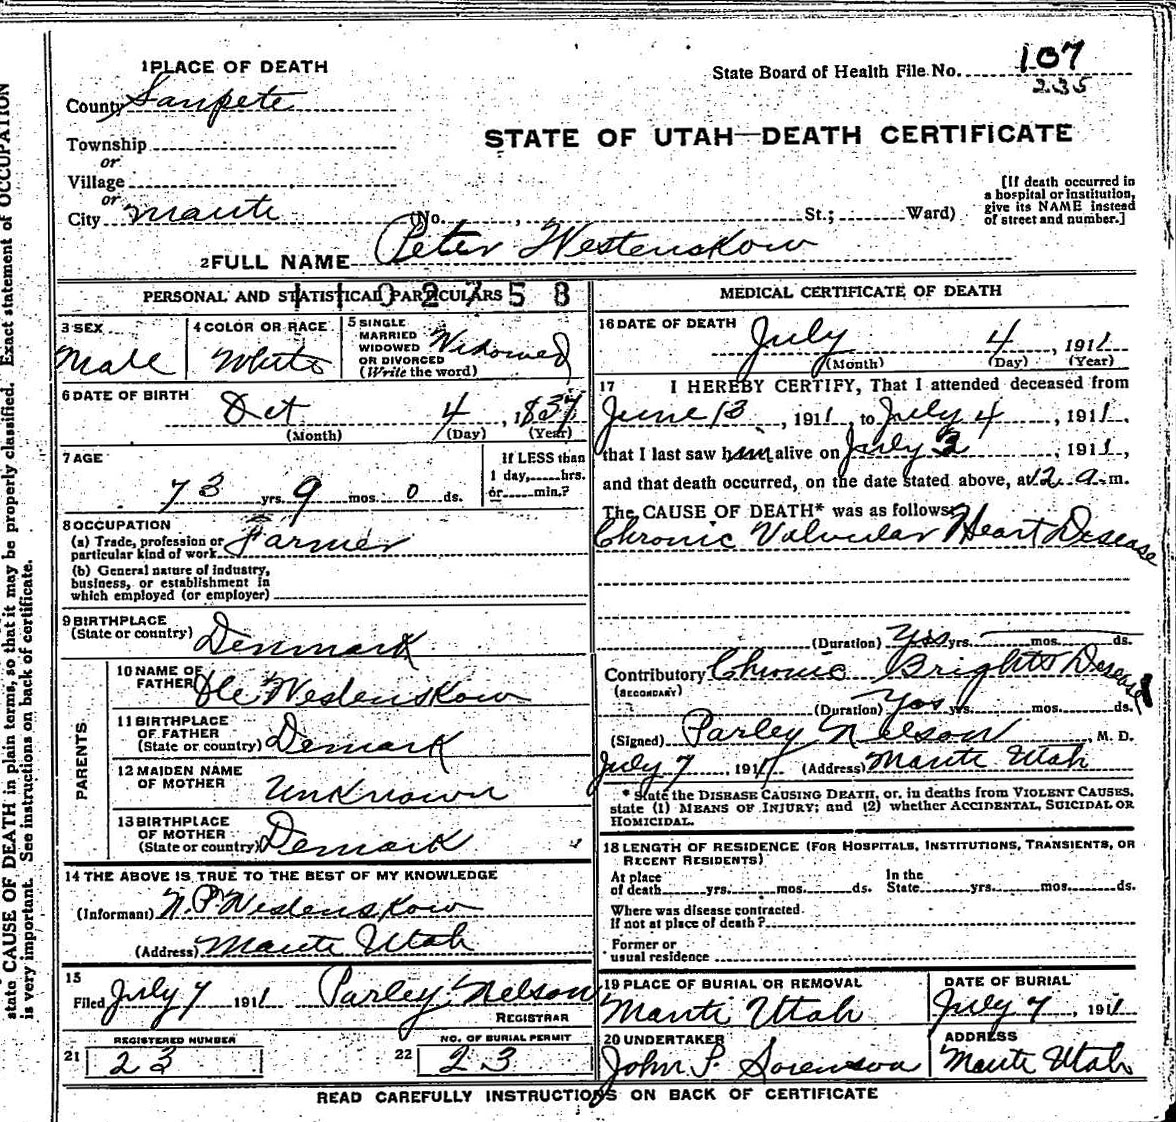 1 PLACE OF DEATH
State Board of Health File No. 107
235
County Sanpete
STATE OF UTAH—DEATH CERTIFICATE
Township
or
Village
or
City Manti (No. , St.; Ward)
[If death occurred in
a hospital or institution,
give its NAME instead
of street and number.]
2 FULL NAME Peter Westenskow
PERSONAL AND STATISTICAL PARTICULARS
1102758
3 SEX
Male
4 COLOR OR RACE
White
5 SINGLE
MARRIED
WIDOWED
OR DIVORCED
(Write the word)
Widowed
6 DATE OF BIRTH
Oct 4, 1837
(Month) (Day) (Year)
7 AGE
73 yrs. 9 mos. 0 ds.
If LESS than
1 day, hrs.
or min.?
8 OCCUPATION
(a) Trade, profession or
particular kind of work Farmer
(b) General nature of industry,
business, or establishment in
which employed (or employer)
9 BIRTHPLACE
(State or country) Denmark
PARENTS
10 NAME OF
FATHER Ole Westenskow
11 BIRTHPLACE
OF FATHER
(State or country) Demark
12 MAIDEN NAME
OF MOTHER Unknown
13 BIRTHPLACE
OF MOTHER
(State or country) Demark
14 THE ABOVE IS TRUE TO THE BEST OF MY KNOWLEDGE
(Informant) N.P. Westenskow
(Address) Manti Utah
15
Filed July 7 1911 Parley Nelson
REGISTRAR
REGISTERED NUMBER
21 23
NO. OF BURIAL PERMIT
22 23
MEDICAL CERTIFICATE OF DEATH
16 DATE OF DEATH
July 4, 1911
(Month) (Day) (Year)
17 I HEREBY CERTIFY, That I attended deceased from
June 13, 1911, to July 4, 1911.
that I last saw him alive on July 3, 1911,
and that death occurred, on the date stated above, at 12 a.m.
The CAUSE OF DEATH* was as follows:
Chronic Valvular Heart Desease
(Duration) Yes yrs. mos. ds.
Contributory Chronic Brights Desease
(SECONDARY)
(Duration) Yes yrs. mos. ds.
(Signed) Parley Nelson, M. D.
July 7, 1911 (Address) Manti Utah
* State the DISEASE CAUSING DEATH, or, in deaths from VIOLENT CAUSES,
state (1) MEANS OF INJURY; and (2) whether ACCIDENTAL, SUICIDAL OR
HOMICIDAL.
18 LENGTH OF RESIDENCE (FOR HOSPITALS, INSTITUTIONS, TRANSIENTS, OR
RECENT RESIDENTS)
At place
of death yrs. mos. ds.
In the
State yrs. mos. ds.
Where was disease contracted
If not at place of death?
Former or
usual residence
19 PLACE OF BURIAL OR REMOVAL
Manti Utah
DATE OF BURIAL
July 7, 1911
20 UNDERTAKER
John P. Sorenson
ADDRESS
Manti Utah
READ CAREFULLY INSTRUCTIONS ON BACK OF CERTIFICATE
state CAUSE OF DEATH in plain terms, so that it may be properly classified. Exact statement of OCCUPATION
is very important. See instructions on back of certificate.